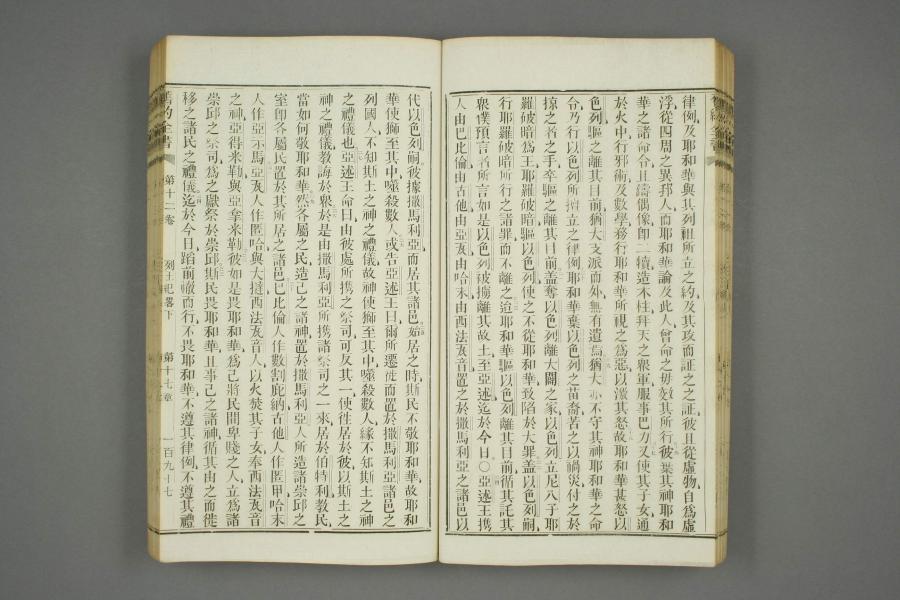 律例及耶和華與其列祖所立之約及其攻而証之之証彼且從虛物自為虛
浮從四周之異邦人而耶和華論及此人曾命之毋效其所行彼棄其神耶和
華之諸命令且鑄偶像即二犢造木柱拜天之眾軍服事巴力又使其子女通
於火中行邪術及數學移行耶和華所視之為惡以激其怒故耶和華甚怒以
色列驅之離其目前猶大支派而外無有遺焉猶大亦不守其神耶和華之命
令乃行以色列所擅立之律例耶和華棄以色列之苗裔苦之以禍災付之於
掠之者之手卒驅之離其目前蓋奪以色列離大闢之家以色列立尼八子耶
羅破暗為王耶羅破暗驅以色列使之不從耶和華致陷於大罪蓋以色列嗣
行耶羅破暗所行之諸罪而不離之迨耶和華驅以色列離其目前循其託其
眾僕預言者所言如是以色列被擄離其故土至亞述迄於今日○亞述王攜
人由巴比倫由古他由亞瓦由哈末由西法瓦音置之於撒馬利亞之諸邑以
代以色列嗣彼據撒馬利亞而居其諸邑始居之時斯民不敬耶和華故耶和
華使獅至其中噬殺數人或告亞述王曰爾所遷徙而置於撒馬利亞諸邑之
列國人不知斯土之神之禮儀故神使獅至其中噬殺數人緣不知斯土之神
之禮儀也亞述王命曰由彼處所攜之祭司可反其一使往居於彼以斯土之
神之禮儀教誨於眾於是由撒馬利亞所攜諸祭司之一來居於伯特利教民
當如何敬耶和華然各屬之民造己之諸神置於撒馬利亞人所造諸崇邱之
室即各屬民置於其所居之諸邑巴比倫人作數割庇納古他人作匿甲哈末
人作亞示馬亞瓦人作匿哈與大撻西法瓦音人以火焚其子女奉西法瓦音
之神亞得米勒與亞拿米勒彼如是畏耶和華為己將民間卑賤之人立為諸
崇邱之祭司為之獻祭於崇邱斯民畏耶和華且事己之諸神循其由之而徙
移之諸民之禮儀迄於今日蹈前轍而行不畏耶和華不遵其律例不遵其禮
舊約全書
第十二卷
列王紀畧下
第十七章
一百九十七